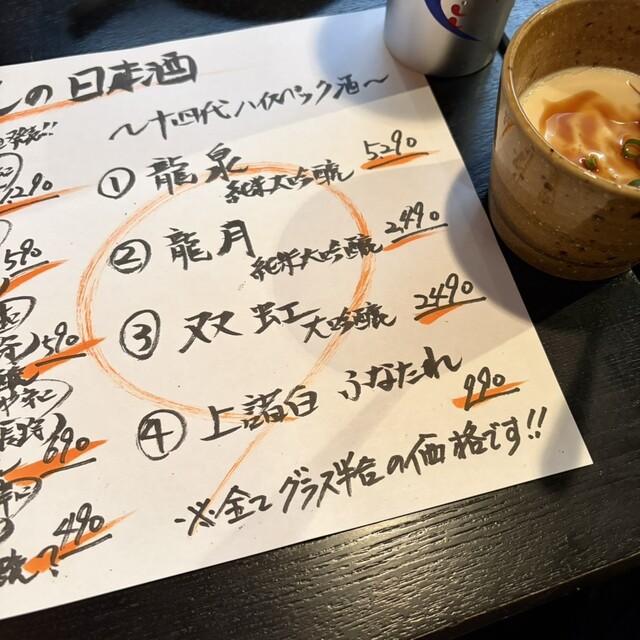 の 日本酒
〜十四代ハイスペック酒〜
① 龍泉 純米大吟醸 5290
② 龍月 純米大吟醸 2,490
③ 双虹 大吟醸 2490
④ 上諸白 ふなたれ 990
※全てグラス半合の価格です!!
290
590
590
690
490